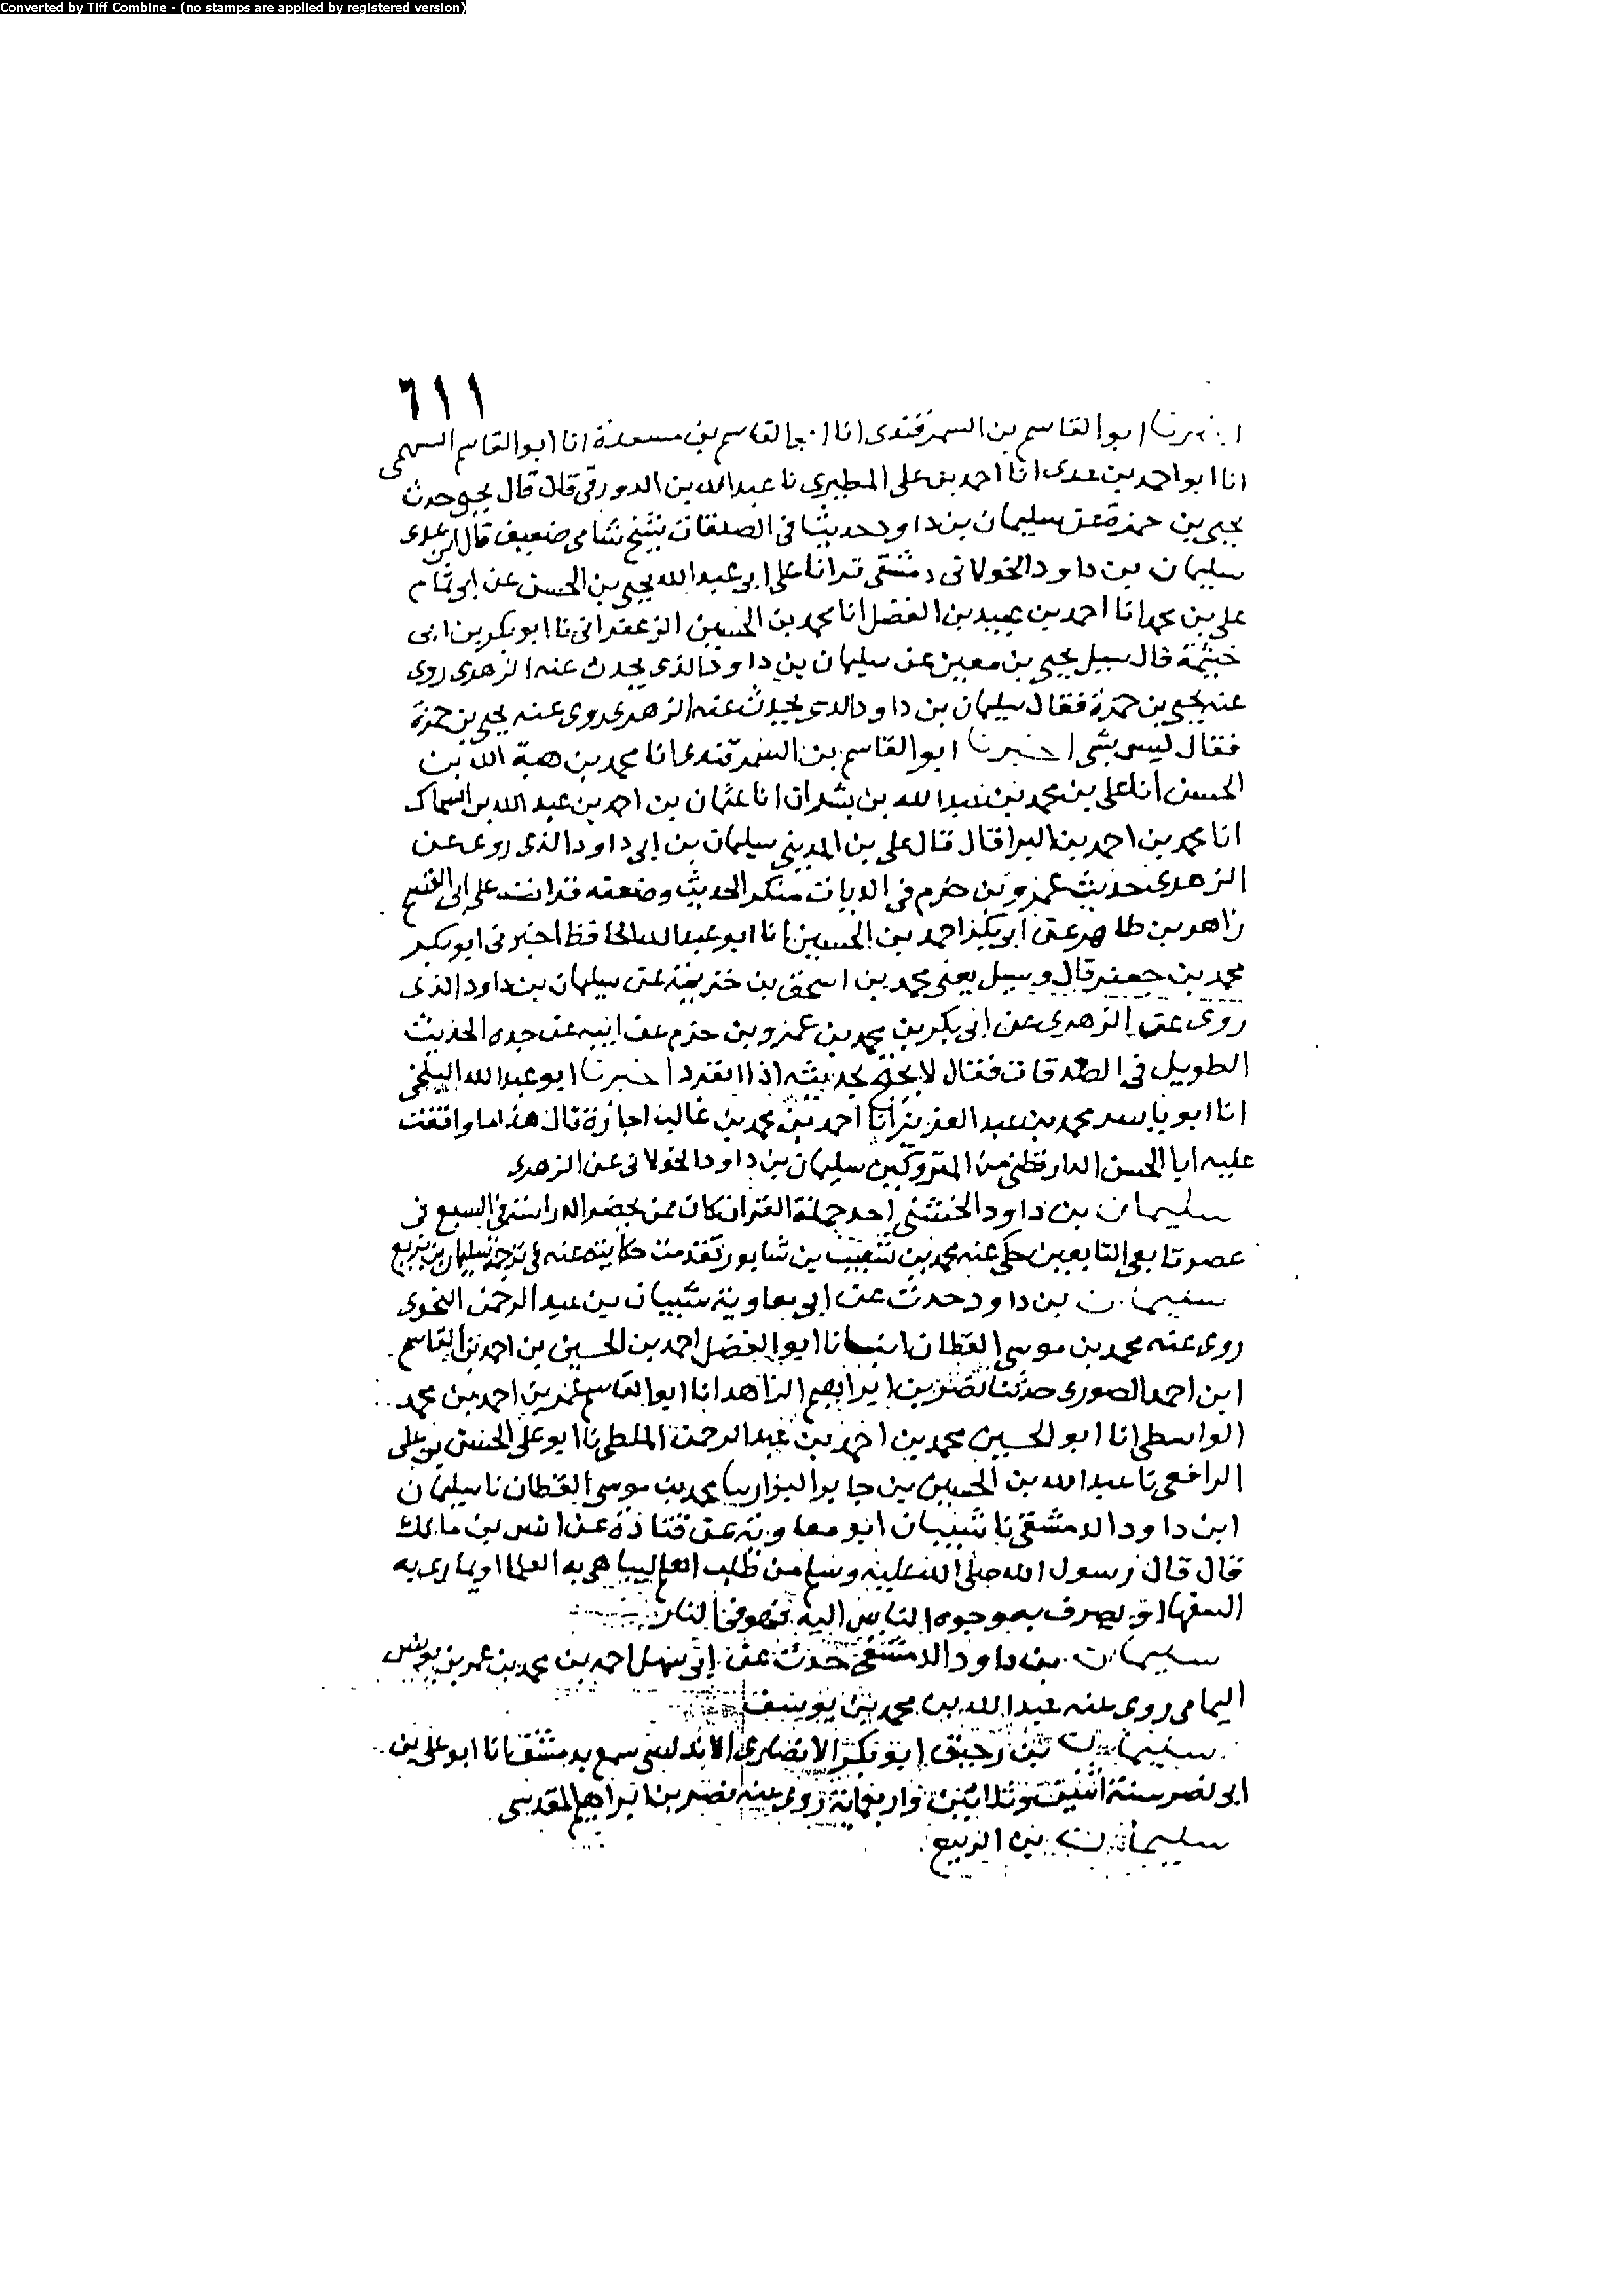 Converted by Tiff Combine - (no stamps are applied by registered version)
٦١١
اخبرنا ابوالقاسم بن السمرقندى انا ابوالقاسم بن مسعدة انا ابوالقاسم السهمى
انا ابواحمد بن عدى انا احمد بن على المطيرى نا عبدالله بن الدورقى قال قال يحيى وحدث
يحيى بن حمزة عن سليمان بن داود حديثا فى الصدقات شيخ شامى ضعيف قال ابن عدى
سليمان بن داود الخولانى دمشقى قرانا على ابى عبدالله يحيى بن الحسن عن ابى تمام
على بن محمد انا احمد بن عبيد بن الفضل انا محمد بن الحسين الزعفرانى نا ابوبكر بن ابى
خيثمة قال سيل يحيى بن معين عن سليمان بن داود الذى يحدث عنه الزهرى روى
عنه يحيى بن حمزة فقال سليمان بن داود الذى يحدث عنه الزهرى روى عنه يحيى بن حمزة
فقال ليس بشى اخبرنا ابوالقاسم بن السمرقندى انا محمد بن هبة الله بن
الحسن انا على بن محمد بن عبدالله بن بشران انا عثمان بن احمد بن عبدالله بن السماك
انا محمد بن احمد بن البرا قال قال على بن المدينى سليمان بن ابى داود الذى روى عن
الزهرى حديث عمرو بن حزم فى الديات منكر الحديث وضعفه قرانت على ابى الفتح
زاهر بن طاهر عن ابى بكر احمد بن الحسين انا ابوعبدالله الحافظ اخبرنى ابوبكر
محمد بن جعفر قال وسيل يعنى محمد بن اسحق بن خزيمة عن سليمان بن داود الذى
روى عن الزهرى عن ابى بكر بن محمد بن عمرو بن حزم عن ابيه عن جده الحديث
الطويل فى الصدقات فقال لا يحتج بحديثه اذا انفرد اخبرنا ابوعبدالله البلخى
انا ابو ياسر محمد بن عبدالعزيز انا احمد بن محمد بن غالب اجازة قال هذا ما وافقت
عليه ابا الحسن الدارقطنى من المتروكين سليمان بن داود الخولانى عن الزهرى
سليمان بن داود الخشنى احد حملة القران كان ممن يحضر الدراسة فى السبع فى
عصر تابعى التابعين حكى عنه محمد بن شعيب بن شابور تقدمت حكايته عنه فى ترجمة سليمان بن بزيع
سليمان بن داود حدث عن ابى معاوية شيبان بن عبدالرحمن النحوى
روى عنه محمد بن موسى القطان انبانا ابوالفضل احمد بن الحسين بن احمد بن القاسم
ابن احمد الصورى حدثنا نصر بن ابراهيم الزاهد انا ابوالقاسم عمر بن احمد بن محمد
الواسطى انا ابوالحسين محمد بن احمد بن عبدالرحمن الملطى نا ابوعلى الحسن بن على
الرافعى نا عبدالله بن الحسين بن جابر البزار نا محمد بن موسى القطان نا سليمان
ابن داود الدمشقى نا شيبان ابو معاوية عن قتادة عن انس بن مالك
قال قال رسول الله صلى الله عليه وسلم من طلب العلم ليباهى به العلما او يمارى به
السفها او يصرف به وجوه الناس اليه فهو فى النار
سليمان بن داود الدمشقى حدث عن ابى سهل احمد بن محمد بن عمر بن يونس
اليمامى روى عنه عبدالله بن محمد بن يوسف
سليمان بن ابوبكر الانصارى الاندلسى سمع بدمشق ابا على بن
ابى نصر سنة اثنين وثلاثين واربعماية روى عنه نصر بن ابراهيم المقدسى
سليمان بن الربيع